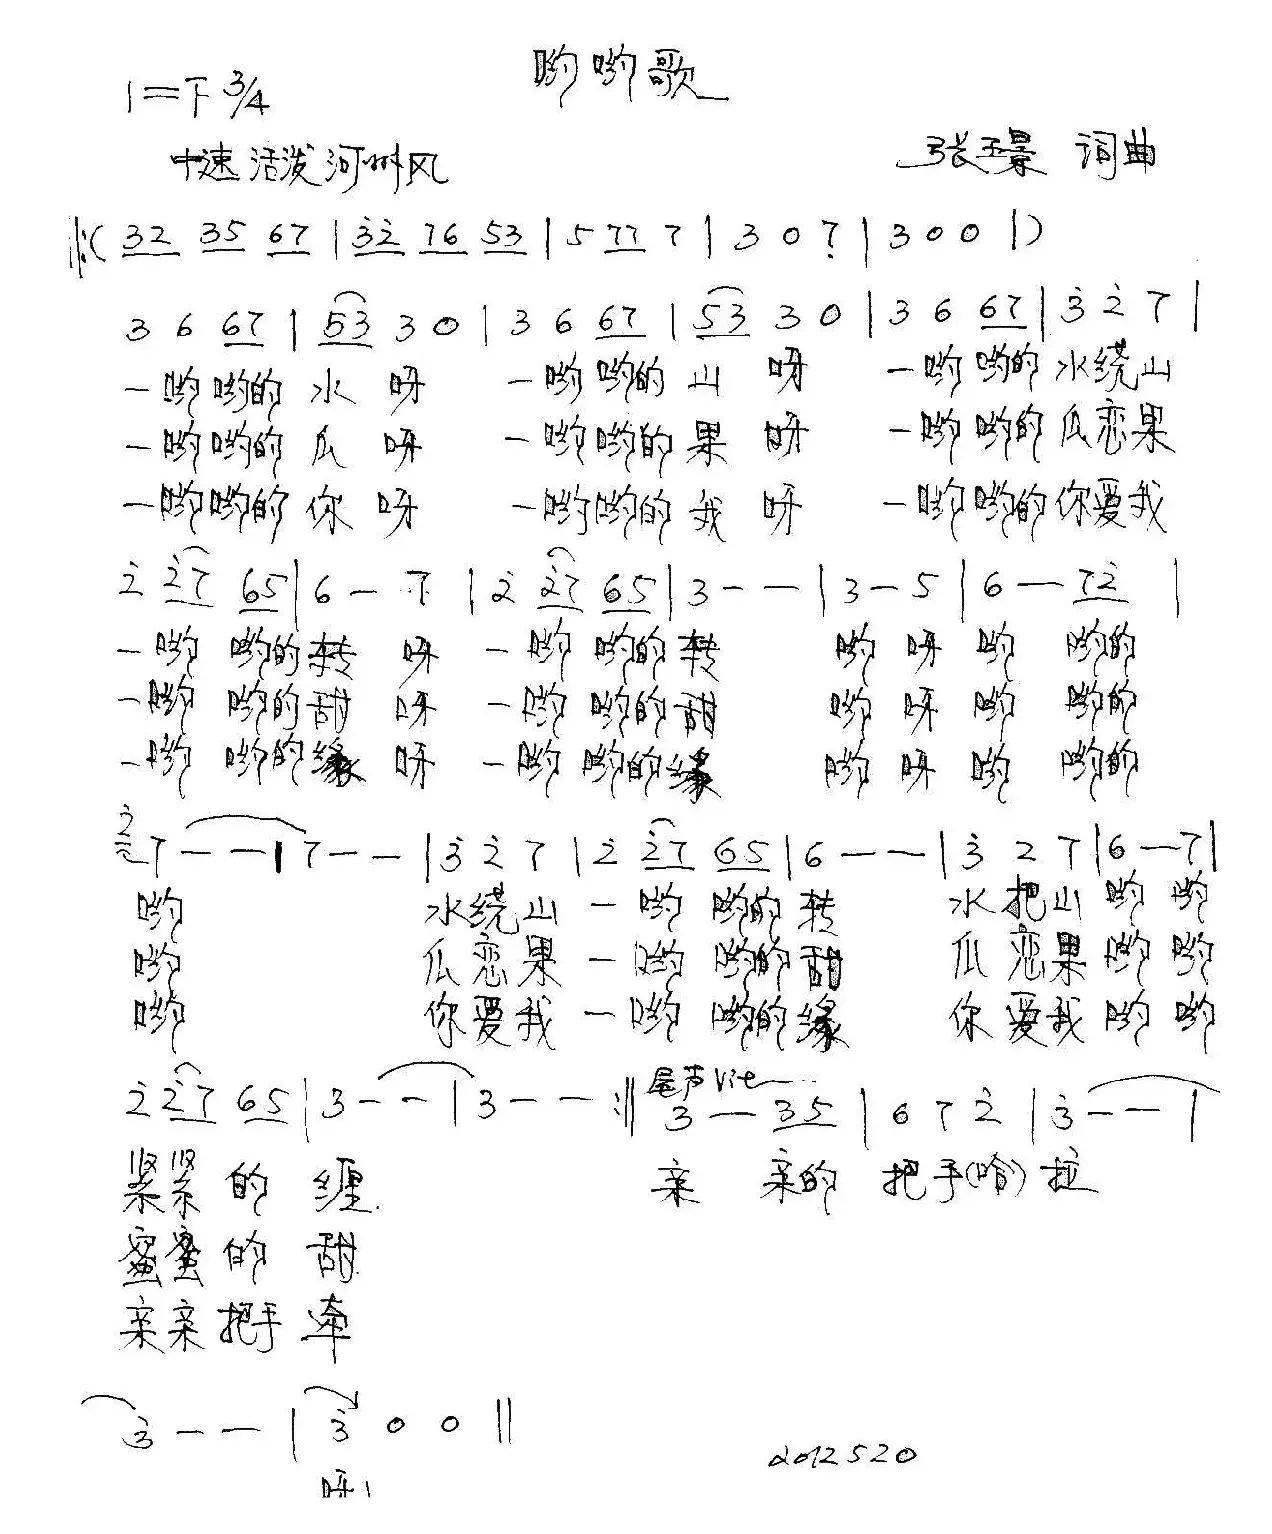 哟哟歌
1=F 3/4
中速 活泼 河州风
张玉景 词曲
‖:( 32 35 67 | 3̇2̇ 76 53 | 5 77 7 | 3 0 7̣ | 3 0 0 | )
3 6 67 | 53 3 0 | 3 6 67 | 53 3 0 | 3 6 67 | 3̇ 2̇ 7 |
一哟哟的 水 呀 一哟哟的 山 呀 一哟哟的水绕山
一哟哟的 瓜 呀 一哟哟的 果 呀 一哟哟的瓜恋果
一哟哟的 你 呀 一哟哟的 我 呀 一哟哟的你爱我
2̇ 2̇7 65 | 6 — 7 | 2̇ 2̇7 65 | 3 — — | 3 — 5 | 6 — 72̇ |
一哟 哟的转 呀 一哟 哟的转 哟 呀 哟 哟的
一哟 哟的甜 呀 一哟 哟的甜 哟 呀 哟 哟的
一哟 哟的缘 呀 一哟 哟的缘 哟 呀 哟 哟的
2̇ 7 — — | 7 — — | 3̇ 2̇ 7 | 2̇ 2̇7 65 | 6 — — | 3̇ 2 7 | 6 — 7 |
哟 水绕山 一哟 哟的 转 水把山 哟 哟
哟 瓜恋果 一哟 哟的甜 瓜恋果 哟 哟
哟 你爱我 一哟 哟的缘 你爱我 哟 哟
2̇ 2̇7 65 | 3 — — | 3 — — :‖ 尾声 Vit 3 — 35 | 6 7 2̇ | 3̇ — — |
紧紧 的 缠 亲 亲的 把手(哈)拉
蜜蜜 的 甜
亲亲 把手 牵
3̇ — — | 3̇ 0 0 ‖
呀!
2012520